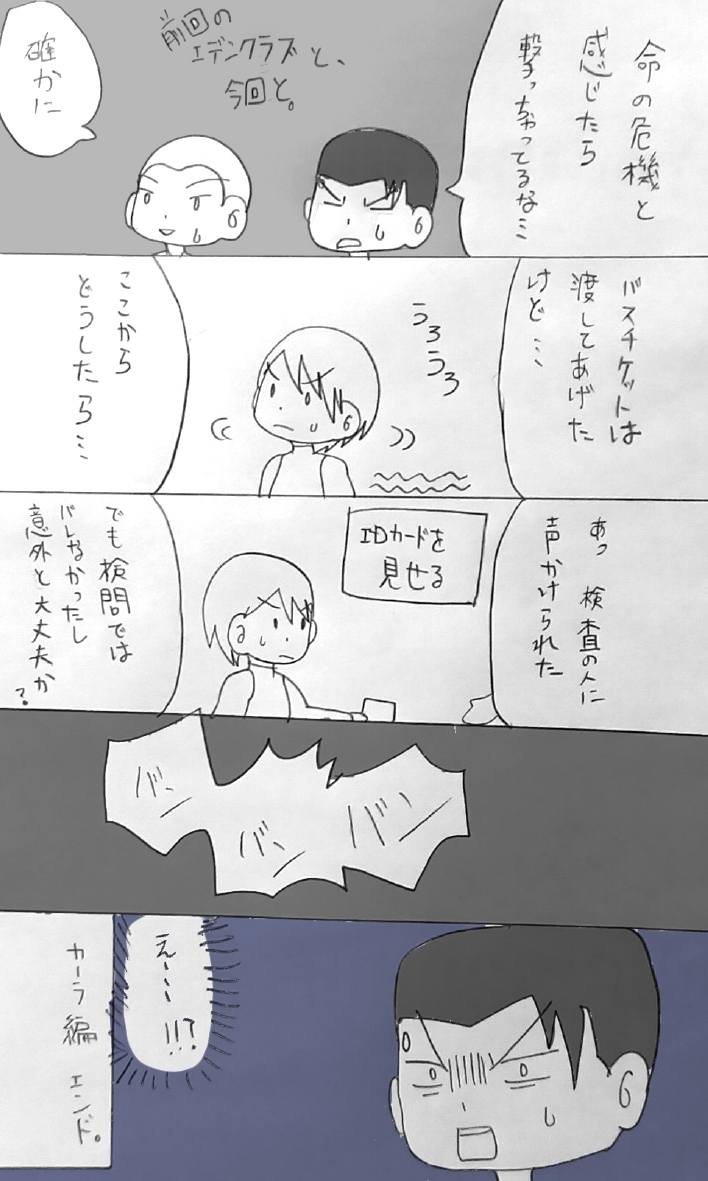 命の危機と
感じたら
撃っちゃってるな…
前回の
エデンクラズと、
今回と。
確かに
バスチケットは
渡してあげた
けど…
うろうろ
ここから
どうしたら…
あっ 検査の人に
声かけられた
IDカードを
見せる
でも検問では
バレなかったし
意外と大丈夫か
?
バン
バン
バン
えーーー!!?
カーラ編 エンド。